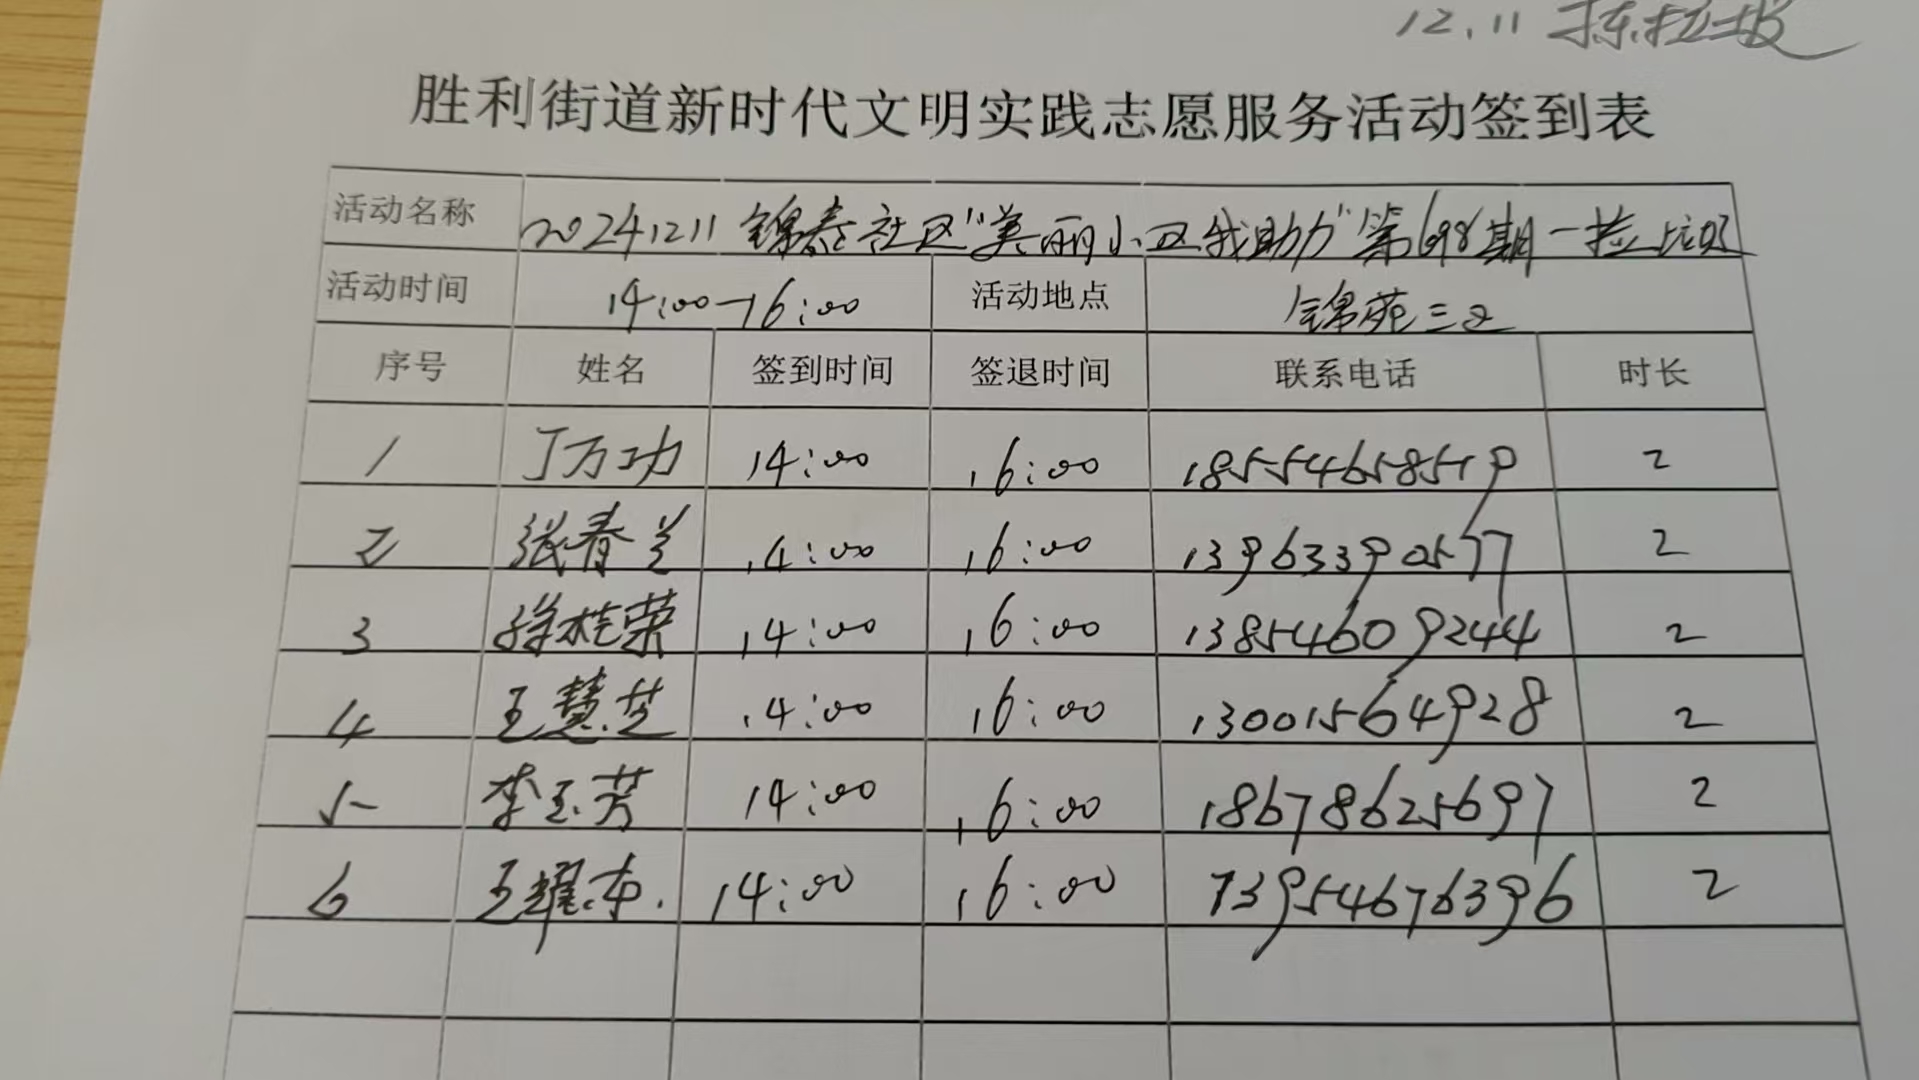 12.11 拣垃圾
胜利街道新时代文明实践志愿服务活动签到表
活动名称 20241211 锦泰社区"美丽小区我助力"第698期一捡垃圾
活动时间 14:00—16:00 活动地点 锦苑三区
序号 姓名 签到时间 签退时间 联系电话 时长
1 丁万功 14:00 16:00 18554658519 2
2 张春兰 14:00 16:00 13963390577 2
3 徐桂荣 14:00 16:00 13854609244 2
4 王慧芝 14:00 16:00 13001564928 2
5 李玉芳 14:00 16:00 18678625697 2
6 王耀东. 14:00 16:00 13954676396 2